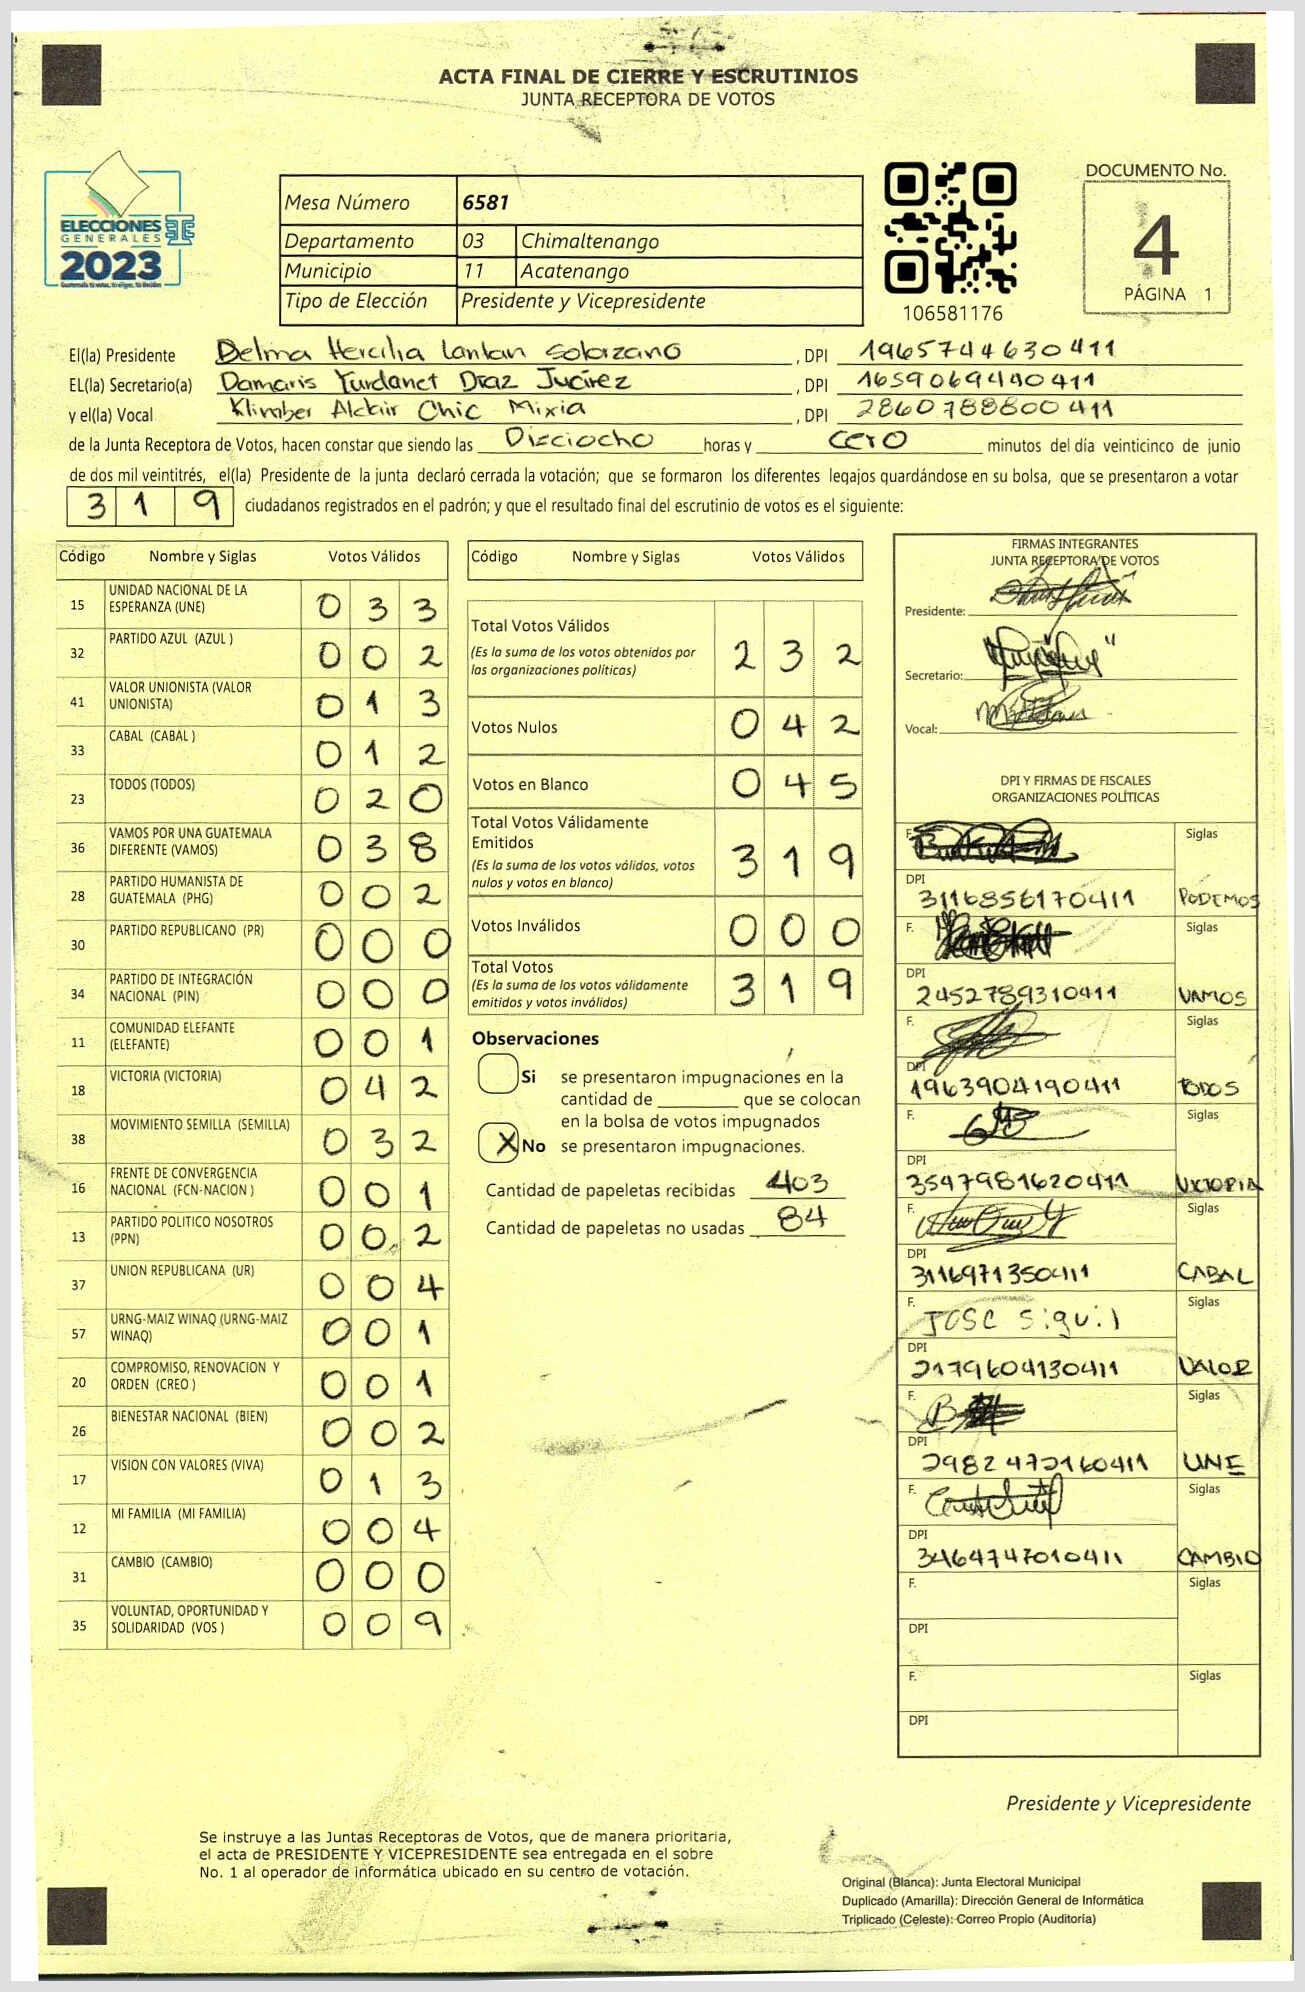 ACTA FINAL DE CIERRE Y ESCRUTINIOS
JUNTA RECEPTORA DE VOTOS
ELECCIONES
GENERALES
2023
Mesa Número 6581
Departamento 03 Chimaltenango
Municipio 11 Acatenango
Tipo de Elección Presidente y Vicepresidente
106581176
DOCUMENTO No.
4
PÁGINA 1
El(la) Presidente Delma Hercilia Lantan Solorzano , DPI 1965744630411
EL(la) Secretario(a) Damaris Yurdanet Diaz Juárez , DPI 1659069440411
y el(la) Vocal Klimber Aldair Chic Mixia , DPI 2860788800411
de la Junta Receptora de Votos, hacen constar que siendo las Dieciocho horas y cero minutos del día veinticinco de junio
de dos mil veintitrés, el(la) Presidente de la junta declaró cerrada la votación; que se formaron los diferentes legajos quardándose en su bolsa, que se presentaron a votar
319 ciudadanos registrados en el padrón; y que el resultado final del escrutinio de votos es el siguiente:
Código Nombre y Siglas Votos Válidos
15 UNIDAD NACIONAL DE LA ESPERANZA (UNE) 033
32 PARTIDO AZUL (AZUL ) 002
41 VALOR UNIONISTA (VALOR UNIONISTA) 013
33 CABAL (CABAL ) 012
23 TODOS (TODOS) 020
36 VAMOS POR UNA GUATEMALA DIFERENTE (VAMOS) 038
28 PARTIDO HUMANISTA DE GUATEMALA (PHG) 002
30 PARTIDO REPUBLICANO (PR) 000
34 PARTIDO DE INTEGRACIÓN NACIONAL (PIN) 000
11 COMUNIDAD ELEFANTE (ELEFANTE) 001
18 VICTORIA (VICTORIA) 042
38 MOVIMIENTO SEMILLA (SEMILLA) 032
16 FRENTE DE CONVERGENCIA NACIONAL (FCN-NACION ) 001
13 PARTIDO POLITICO NOSOTROS (PPN) 002
37 UNION REPUBLICANA (UR) 004
57 URNG-MAIZ WINAQ (URNG-MAIZ WINAQ) 001
20 COMPROMISO, RENOVACION Y ORDEN (CREO ) 001
26 BIENESTAR NACIONAL (BIEN) 002
17 VISION CON VALORES (VIVA) 013
12 MI FAMILIA (MI FAMILIA) 004
31 CAMBIO (CAMBIO) 000
35 VOLUNTAD, OPORTUNIDAD Y SOLIDARIDAD (VOS ) 009
Código Nombre y Siglas Votos Válidos
Total Votos Válidos
(Es la suma de los votos obtenidos por las organizaciones políticas) 232
Votos Nulos 042
Votos en Blanco 045
Total Votos Válidamente Emitidos
(Es la suma de los votos válidos, votos nulos y votos en blanco) 319
Votos Inválidos 000
Total Votos
(Es la suma de los votos válidamente emitidos y votos inválidos) 319
Observaciones
Si se presentaron impugnaciones en la
cantidad de ________ que se colocan
en la bolsa de votos impugnados
X No se presentaron impugnaciones.
Cantidad de papeletas recibidas 403
Cantidad de papeletas no usadas 84
FIRMAS INTEGRANTES
JUNTA RECEPTORA DE VOTOS
Presidente:
Secretario:
Vocal:
DPI Y FIRMAS DE FISCALES
ORGANIZACIONES POLÍTICAS
F. Siglas
DPI
3116856170411 PODEMOS
F. Siglas
DPI
2452789310411 VAMOS
F. Siglas
DPI
1963904190411 TODOS
F. Siglas
DPI
3547981620411 VICTORIA
F. Siglas
DPI
3116971350411 CABAL
F. JOSE Siguil Siglas
DPI
2179604130411 VALOR
F. Siglas
DPI
2982472160411 UNE
F. Siglas
DPI
3464747010411 CAMBIO
F. Siglas
DPI
F. Siglas
DPI
Presidente y Vicepresidente
Se instruye a las Juntas Receptoras de Votos, que de manera prioritaria,
el acta de PRESIDENTE Y VICEPRESIDENTE sea entregada en el sobre
No. 1 al operador de informática ubicado en su centro de votación.
Original (Blanca): Junta Electoral Municipal
Duplicado (Amarilla): Dirección General de Informática
Triplicado (Celeste): Correo Propio (Auditoría)